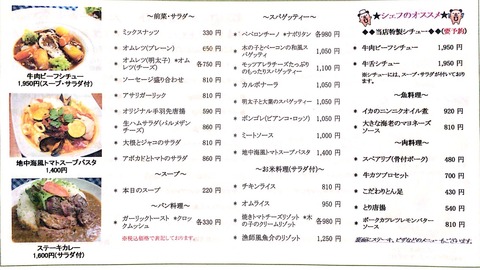 牛肉ビーフシチュー
1,950円(スープ・サラダ付)
地中海風トマトスープパスタ
1,400円
ステーキカレー
1,600円(サラダ付)
～前菜・サラダ～
* ミックスナッツ 330 円
* オムレツ(プレーン) 650 円
* オムレツ(明太子) *オムレツ(チーズ) 各750 円
* ソーセージ盛り合わせ 810 円
* アサリガーリック 810 円
* オリジナル手羽先唐揚 590 円
* 生ハムサラダ(パルメザンチーズ) 860 円
* 大根とジャコのサラダ 860 円
* アボカドとトマトのサラダ 860 円
～スープ～
* 本日のスープ 220 円
～パン料理～
* ガーリックトースト *クロックムッシュ 各330 円
※税込価格で表記しております。
～スパゲッティー～
* ペペロンチーノ *ナポリタン 各980 円
* 木の子とベーコンの和風スパゲッティ 1,100 円
* モッツアレラチーズたっぷりのもったりスパゲッティ 1,100 円
* カルボナーラ 1,050 円
* 明太子と大葉のスパゲッティー 1,050 円
* ボンゴレ(ビアンコ・ロッソ) 1,200 円
* ミートソース 1,000 円
* 地中海風トマトスープパスタ 1,400 円
～お米料理(サラダ付)～
* チキンライス 810 円
* オムライス 950 円
* 焼きトマトチーズリゾット *木の子のクリームリゾット 各980 円
* 漁師風魚介のリゾット 1,250 円
★シェフのオススメ★
◆◆当店特製シチュー◆◆(要予約)
* 牛肉ビーフシチュー 1,950 円
* 牛舌シチュー 1,950 円
※シチューには、スープ・サラダが付いております。
～魚料理～
* イカのニンニクオイル煮 920 円
* 大きな海老のマヨネーズソース 810 円
～肉料理～
* スペアリブ(骨付ポーク) 480 円
* 牛カツプロセット 700 円
* こだわりとん足 430 円
* とり唐揚 540 円
* ポークカツレツレモンバターソース 810 円
裏面にステーキ、ピザなどのメニューもございます。